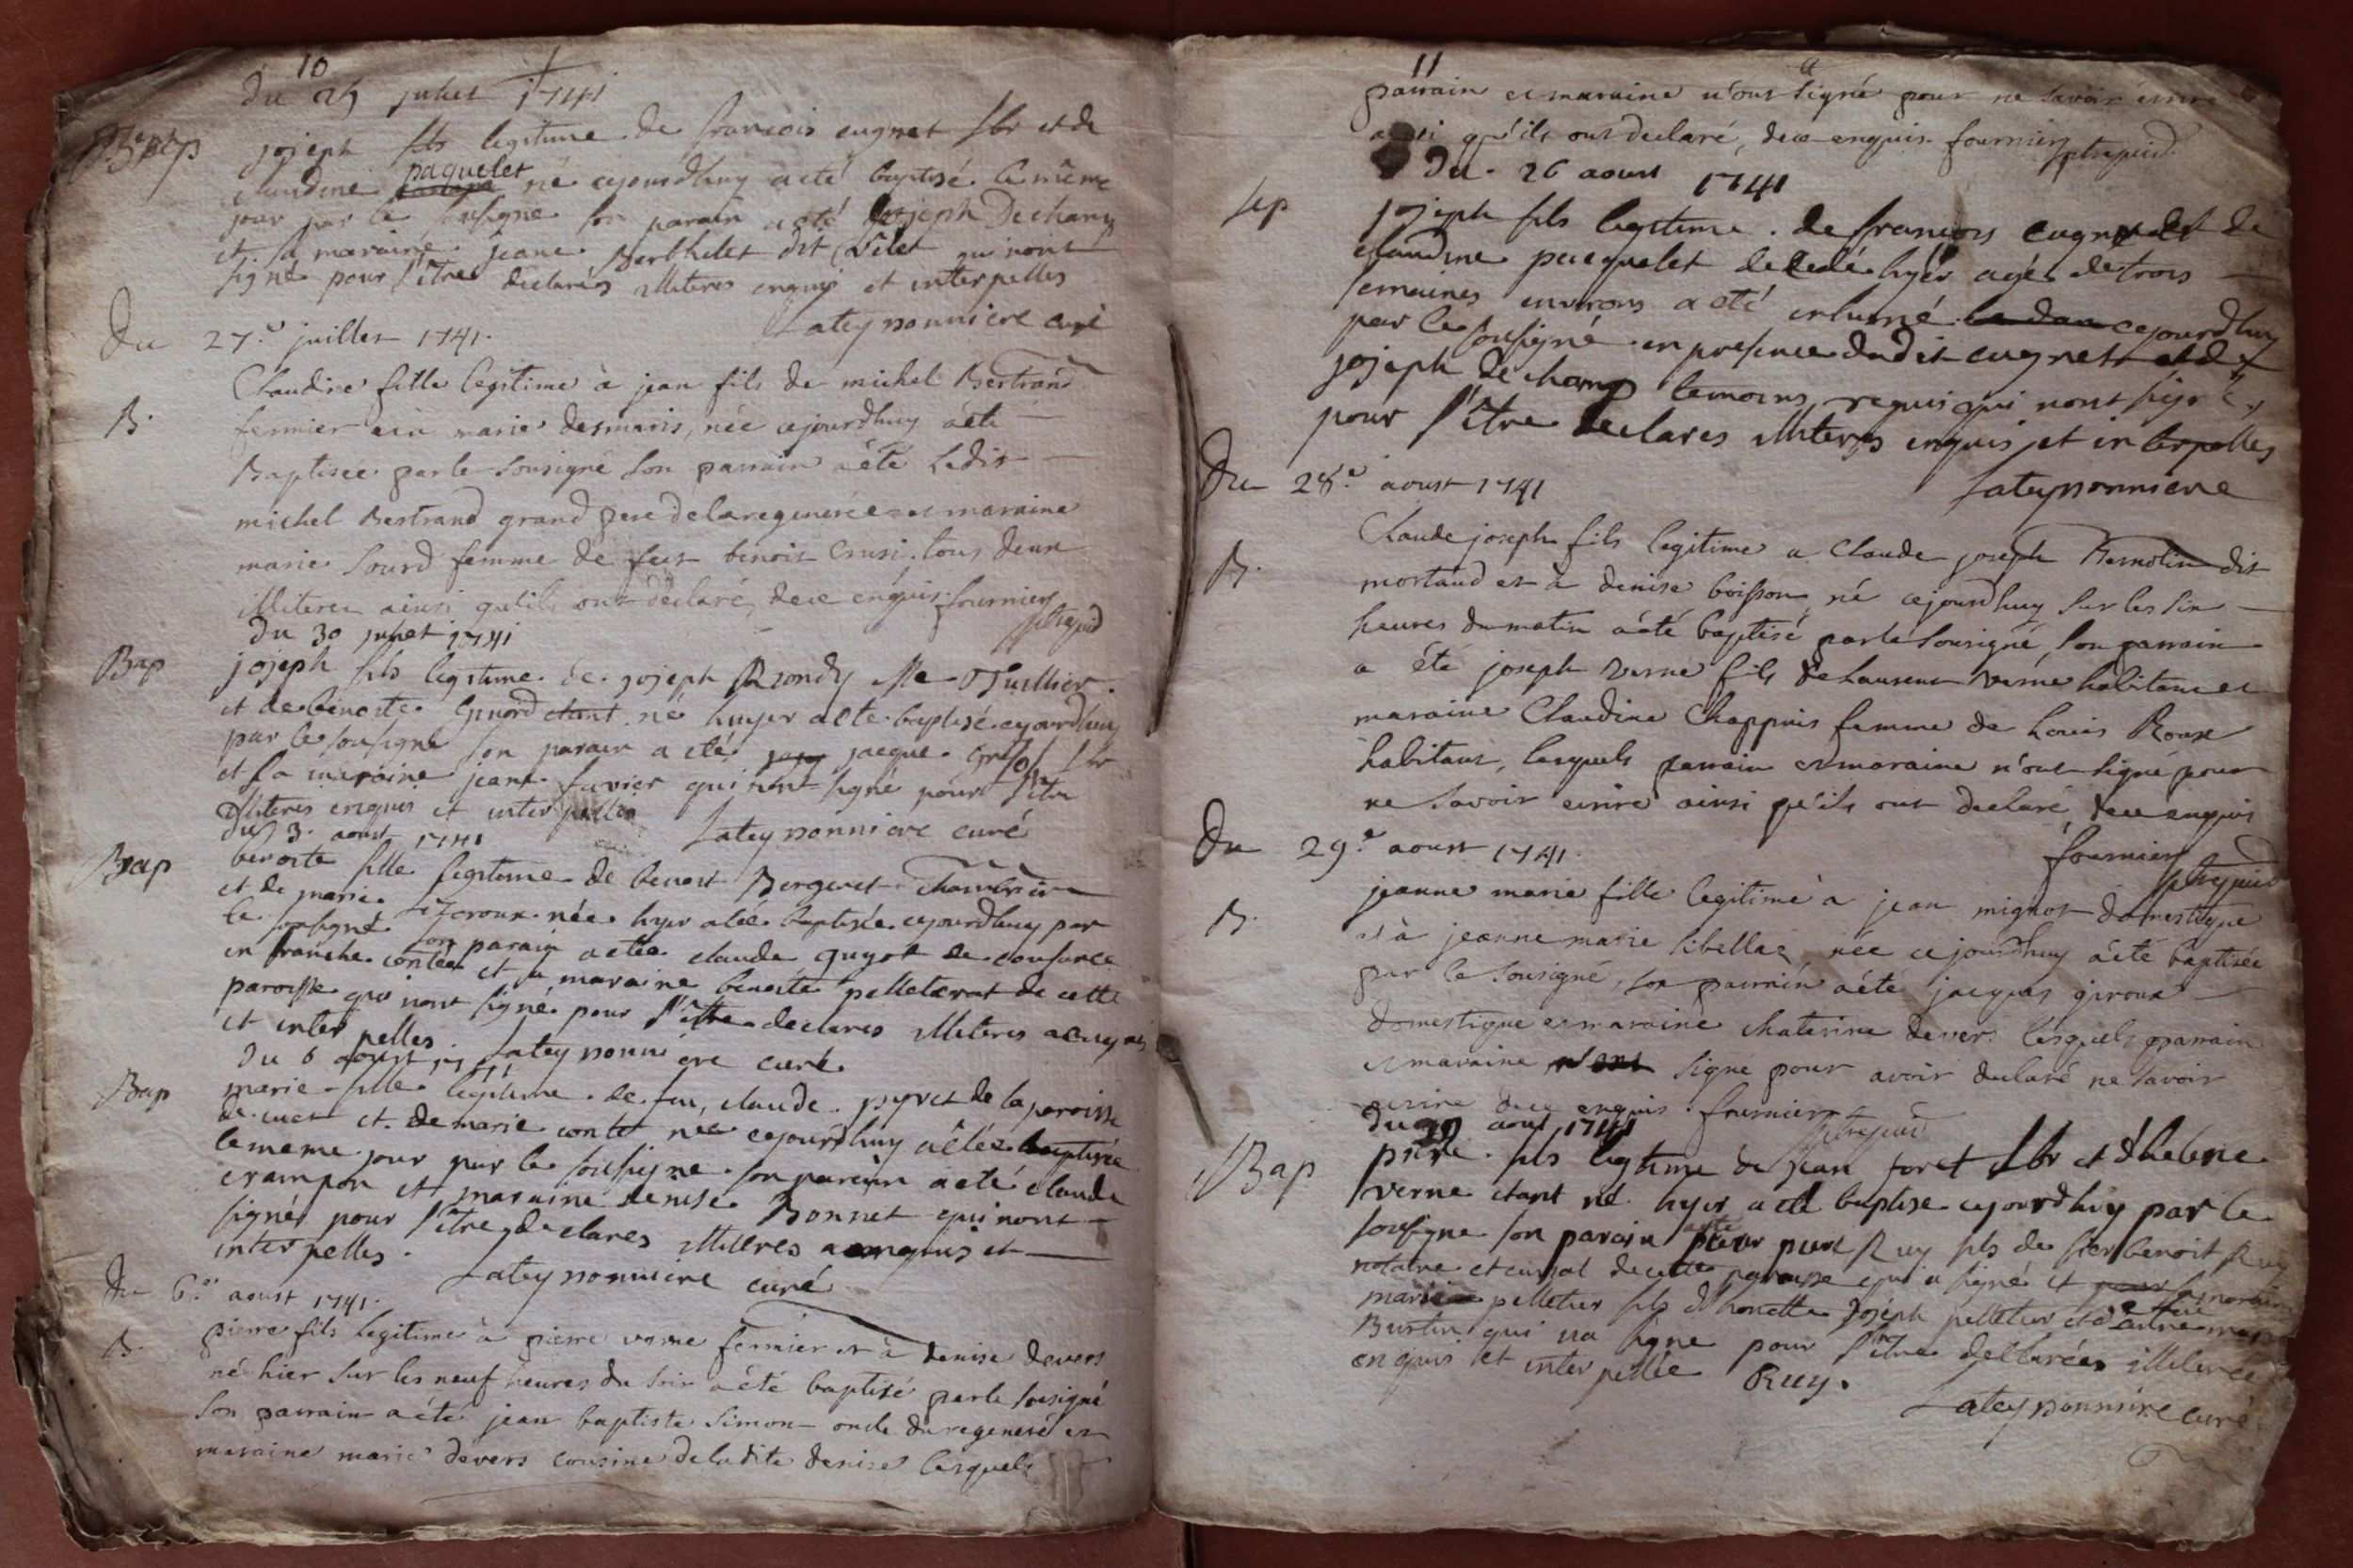 10
du 25 juliet 1741
Bapt joseph fils legitime de francois cugnet lbr et de
claudine paquelet né cejourdhuy a eté baptisé le même
jour par le sousigne son parain a eté joseph Dechamp
et sa maraine jeane Berthelet dit qui nont
signé pour l'être declarés illiteres enquis et interpelles
Lateyssonniere curé
Du 27.e juillet 1741.
Claudine fille legitime à jean fils de michel Bertrand
B. fermier et à marie desmaris, née cejourdhuy a été
Baptisée par le sousigné son parrain a été Ledit
michel Bertrand grand pere de la regenerée et maraine
marie sourd femme de feut benoit tous deux
illiteres ainsi qu'ils ont declaré, de ce enquis. fournier
du 30 juliet 1741
Bap joseph fils legitime de joseph Rondy Me
et de benoite né huyer a ete baptisé cejourdhuy
par le sousigné son parain a eté jacque lbr
et sa maraine jeane favier qui nont signé pour l'etre
illiteres enquis et interpelles Lateyssonniere curé
du 3 aoust 1741
Bap benoite fille legitime de benoit Bergeret
et de marie née hyer a été baptisée cejourdhuy par
le sousigné son parain a eté claude guyot de
en franche contée et sa maraine benoite pelleterat de cette
paroisse qui nont signé pour l'être declares illiteres
et interpelles Lateyssonniere curé.
du 6 aoust 1741
Bap marie fille legitime de feu claude de la paroisse
de cuet et de marie contet née cejourdhuy a étée baptisée
le meme jour par le sousigné son parain a eté claude
crampon et maraine denise Bonnet qui nont
signés pour l'être declares illiteres enquis et
interpelles. Lateyssonniere curé
du 6.e aoust 1741.
B. pierre fils legitime à pierre verne fermier et à denise devers
né hier sur les neuf heures du soir a été baptisé par le sousigné
son parrain a été jean baptiste simon oncle du regeneré et
maraine marie devers cousine de ladite denise lesquels
11
parrain et maraine n'ont signé pour ne savoir écrire
ainsi qu'ils ont declaré, de ce enquis. fournier
Du 26 aoust 1741
Sep joseph fils legitime de francois cugnet et de
claudine paequelet decedé hyer agé de trois
semaines environs a eté inhumé cejourdhuy
par le sousigné en presence dudit cugnet et de
joseph dechamp temoins requis qui nont signé
pour l'être declares illiteres enquis et interpelles
Lateyssonniere
Du 28.e aoust 1741
Claude joseph fils legitime a Claude joseph Bernolin dit
B. mortaud et à denise boisson né cejourdhuy sur les six
heures du matin a été baptisé par le sousigné, son parrain
a été joseph verne fils de laurent verne habitant et
maraine Claudine Chappuis femme de Louis Roux
habitant, lesquels parrain et maraine n'ont signé pour
ne savoir ecrire ainsi qu'ils ont declaré, de ce enquis
fournier
Du 29.e aoust 1741.
jeanne marie fille legitime à jean mignot domestique
B. et à jeanne marie sibellas née ce jourdhuy a été baptisée
par le sousigné, son parrain a été jacques giroux
domestique et maraine chaterine devers lesquels parrain
et maraine n'ont signé pour avoir declaré ne savoir
ecrire de ce enquis. fournier
du 29 aout 1741
Bap piere fils legitime de jean foret lbr et d'helene
verne etant né hyer a eté baptise cejourdhuy par le
sousigne son parain a eté sieur piere Ruy fils de sier benoit Ruy
notaire et curial de cette paroisse qui a signé et
marie pelletier fils d'honnette joseph pelletier et
Burtin qui na signe pour l'être declarées illiteree
enquis et interpellée Ruy. Lateyssonniere curé